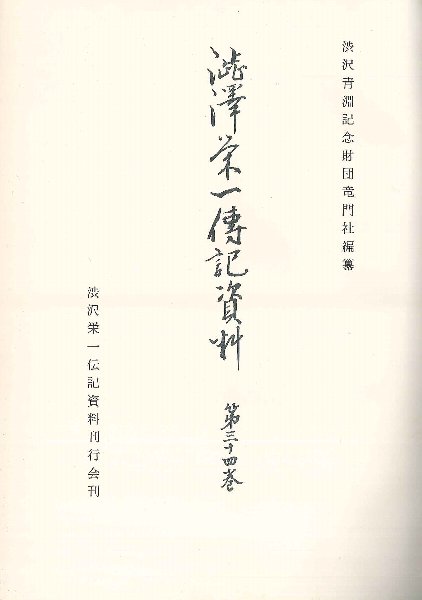 渋沢青淵記念財団竜門社編纂
澁澤栄一傳記資料
第三十四巻
渋沢栄一伝記資料刊行会刊